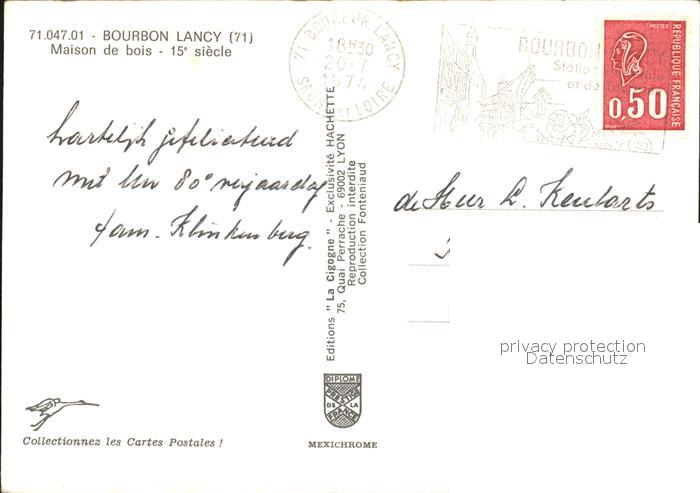 71.047.01 - BOURBON LANCY (71)
Maison de bois - 15e siècle
71 BOURBON LANCY
18H30
20-
1974
SAONE ET LOIRE
BOURBON
Station
et de
POSTES
RÉPUBLIQUE FRANÇAISE
0,50
hartelijk gefeliciteerd
met Uw 80e verjaardag
fam. Klinkenberg.
de Heer L. Keularts
Editions "La Cigogne" - Exclusivité HACHETTE
75, Quai Perrache - 69002 LYON
Reproduction interdite
Collection Fonteniaud
privacy protection
Datenschutz
DIPLOME
PRESTIGE
DE LA
FRANCE
Collectionnez les Cartes Postales !
MEXICHROME